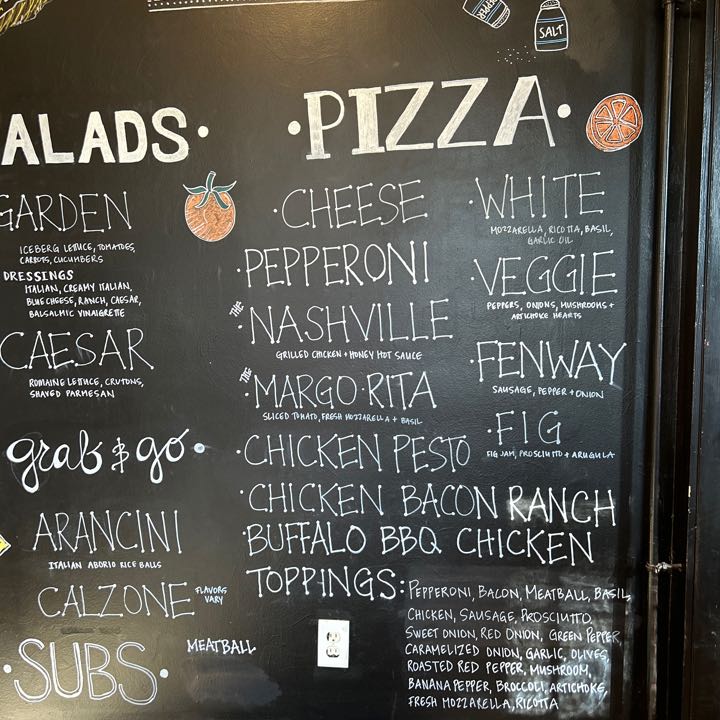 PEPPER
SALT
ALADS
GARDEN
ICEBERG LETTUCE, TOMATOES,
CARROTS, CUCUMBERS
DRESSINGS
ITALIAN, CREAMY ITALIAN,
BLUE CHEESE, RANCH, CAESAR,
BALSALMIC VINAIGRETTE
CAESAR
ROMAINE LETTUCE, CRUTONS,
SHAVED PARMESAN
grab & go
ARANCINI
ITALIAN ABORIO RICE BALLS
CALZONE FLAVORS
VARY
SUBS
MEATBALL
PIZZA
CHEESE
PEPPERONI
THE NASHVILLE
GRILLED CHICKEN + HONEY HOT SAUCE
THE MARGO·RITA
SLICED TOMATO, FRESH MOZZARELLA + BASIL
CHICKEN PESTO
CHICKEN BACON RANCH
BUFFALO BBQ CHICKEN
WHITE
MOZZARELLA, RICOTTA, BASIL,
GARLIC OIL
VEGGIE
PEPPERS, ONIONS, MUSHROOMS +
ARTICHOKE HEARTS
FENWAY
SAUSAGE, PEPPER + ONION
FIG
FIG JAM, PROSCIUTTO + ARUGULA
TOPPINGS: PEPPERONI, BACON, MEATBALL, BASIL,
CHICKEN, SAUSAGE, PROSCIUTTO,
SWEET ONION, RED ONION, GREEN PEPPER,
CARAMELIZED ONION, GARLIC, OLIVES,
ROASTED RED PEPPER, MUSHROOM,
BANANA PEPPER, BROCCOLI, ARTICHOKE,
FRESH MOZZARELLA, RICOTTA